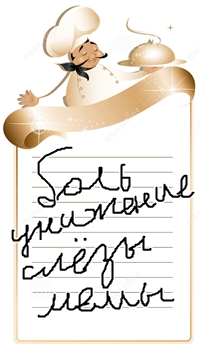 Боль
унижение
слёзы
мемы